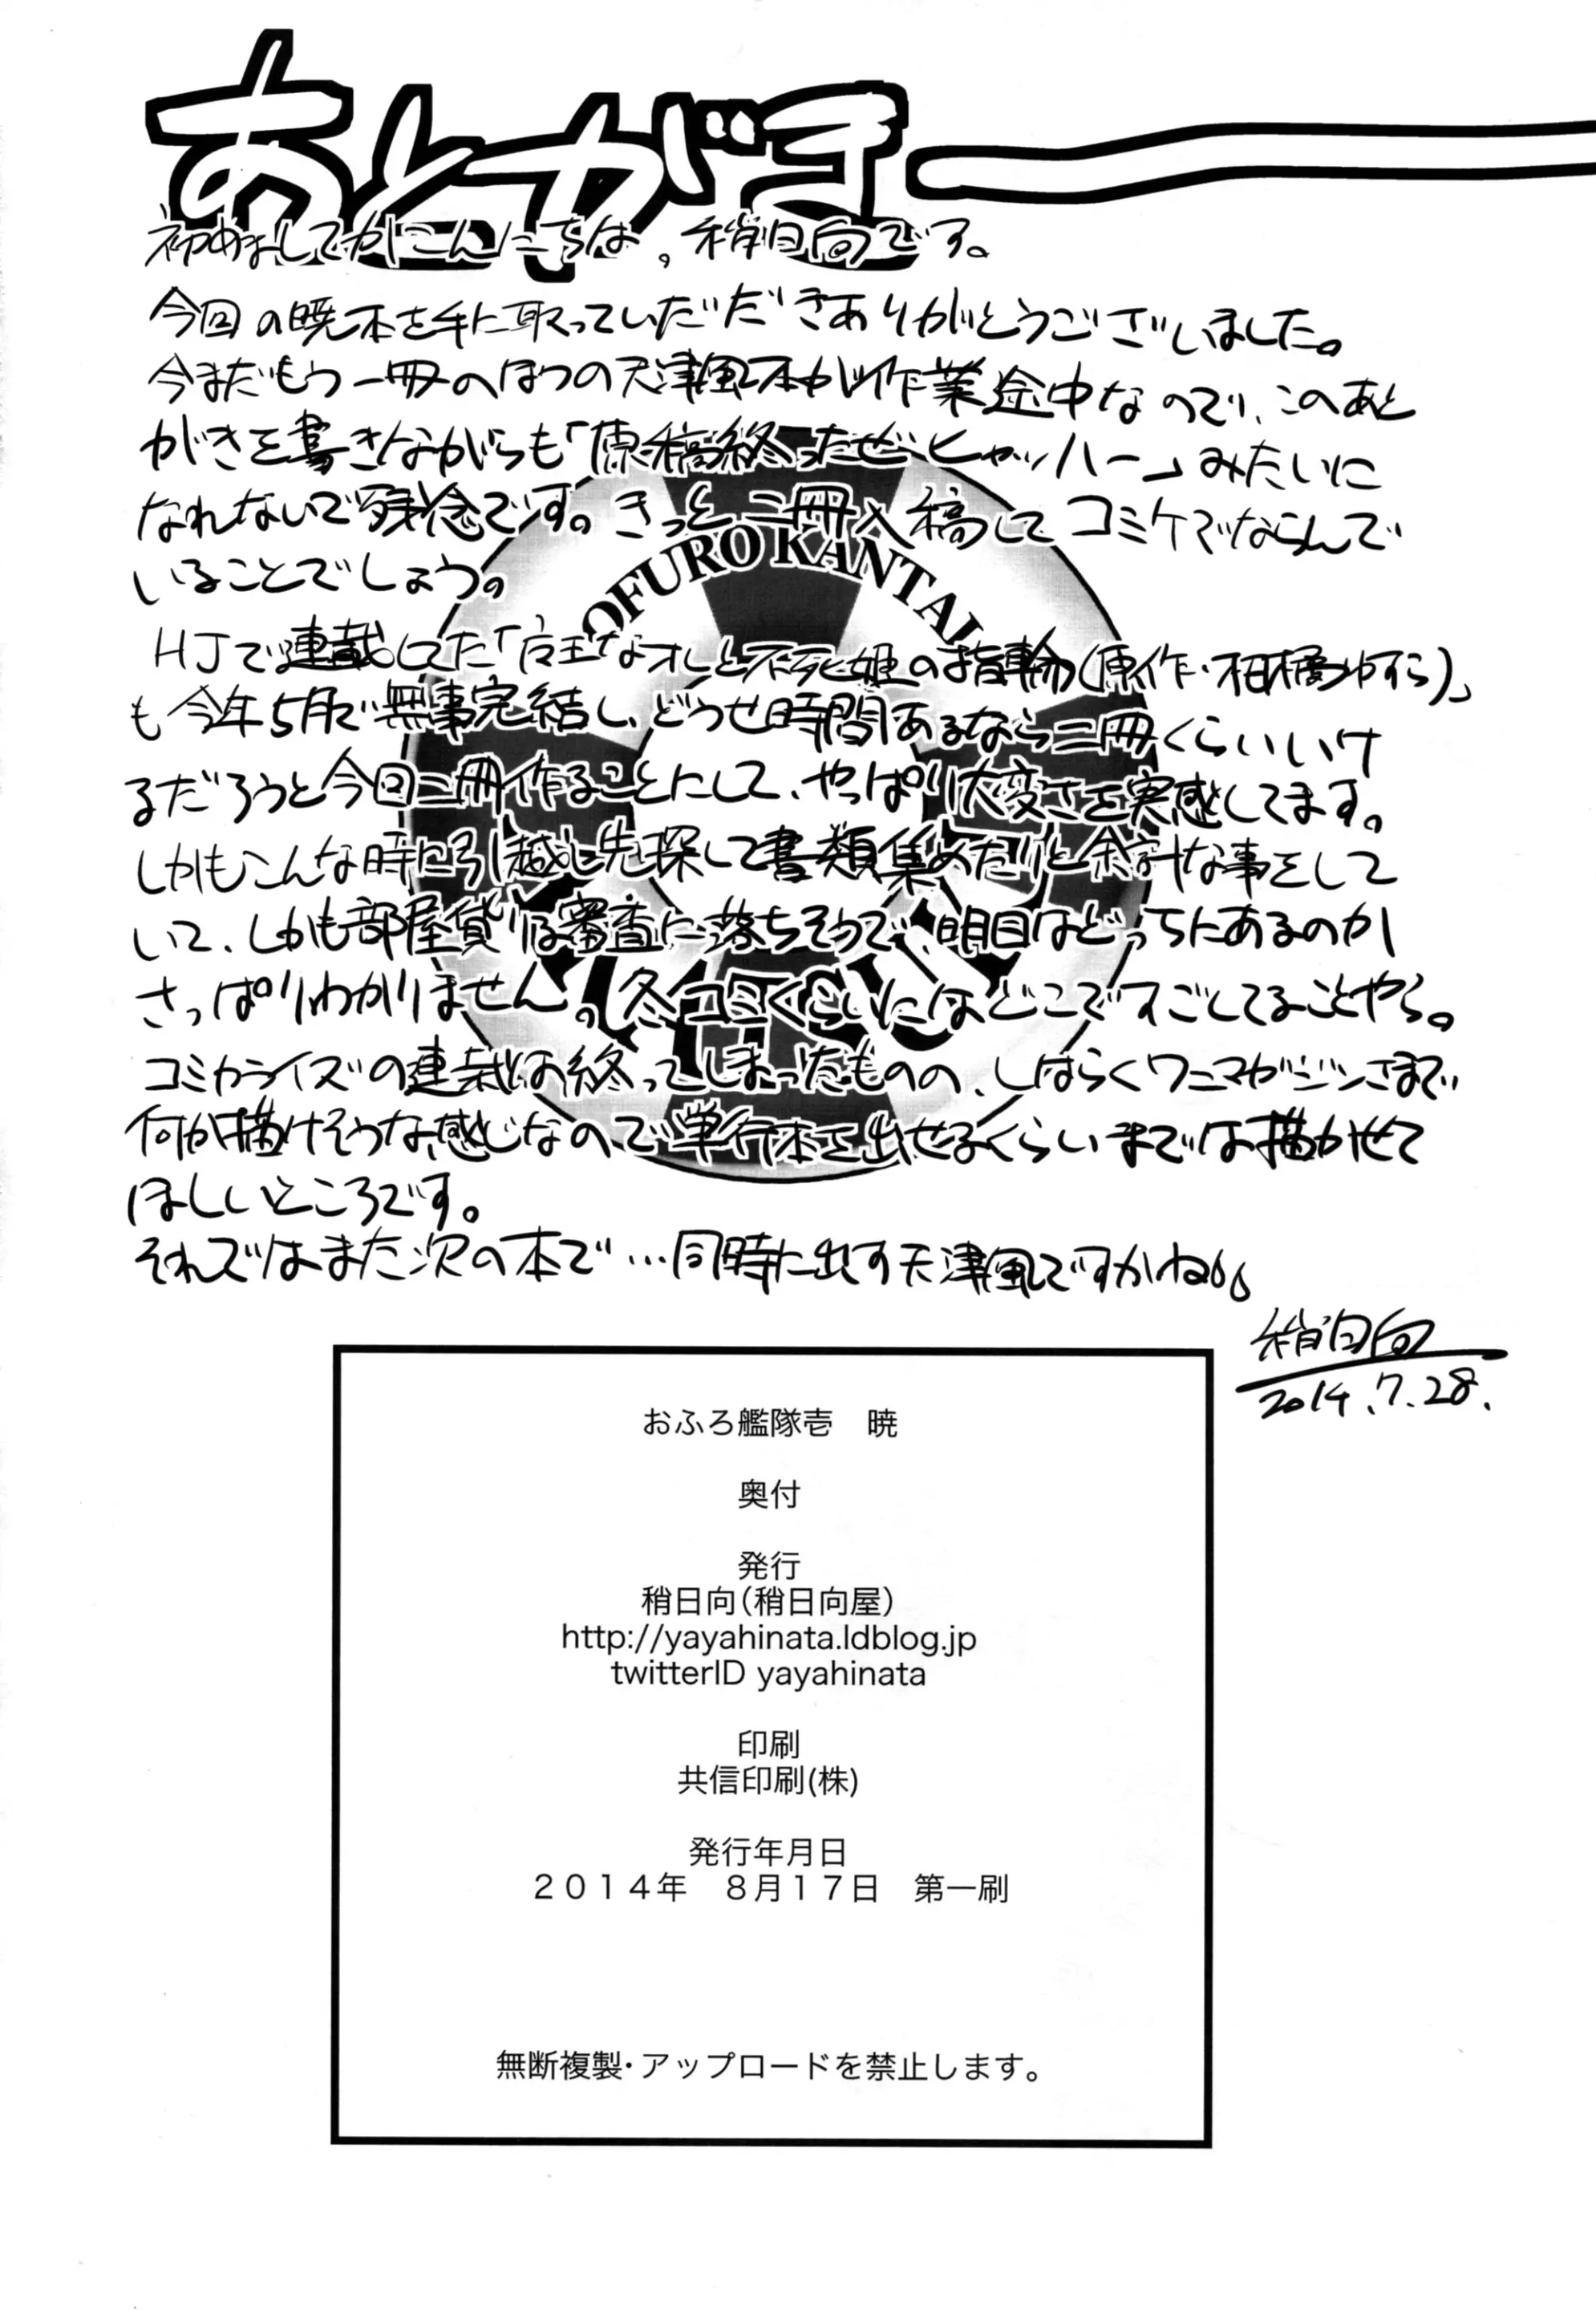 あとがき
初めましてかにこんにちは、稍日向です。
今回の暁本を手に取っていただだきありがとうございました。
今まだもう一冊のほうの天津風本が作業途中なので、このあと
がきを書きながらも「原稿終ったぜーヒャッハー」みたいに
なれないで残念です。きっと二冊入稿してコミケでならんで
いることでしょう。
HJで連載してた「店主なオレと不死姫の指輪(原作・柑橘ゆすら)」
も今年5月で無事完結し、どうせ時間あるなら二冊くらいいけ
るだろうと今回二冊作ることにして、やっぱり大変さを実感してます。
しかもこんな時に引越し先探して書類集めたりと余計な事をして
いて、しかも部屋貸りは審査に落ちそうで、明日はどっちにあるのか
さっぱりわかりません。冬コミくらいにはどこですごしてることやら。
コミカライズの連載は終ってしまったものの、しばらくワニマガジンさまで
何か描けそうな感じなので単行本を出せるくらいまでは描かせて
ほしいところです。
それではまた次の本で…同時に出す天津風ですかね。
稍日向
2014.7.28.
OFURO KANTAI
おふろ艦隊壱 暁
奥付
発行
稍日向(稍日向屋)
http://yayahinata.ldblog.jp
twitterID yayahinata
印刷
共信印刷(株)
発行年月日
２０１４年 ８月１７日 第一刷
無断複製・アップロードを禁止します。